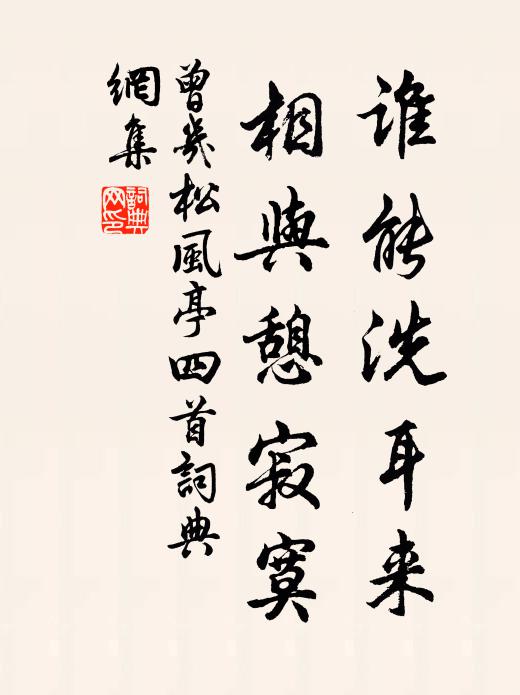 谁能洗耳来
相與憩寂寞
曾幾松風亭四首詞典
網集
詞典網印